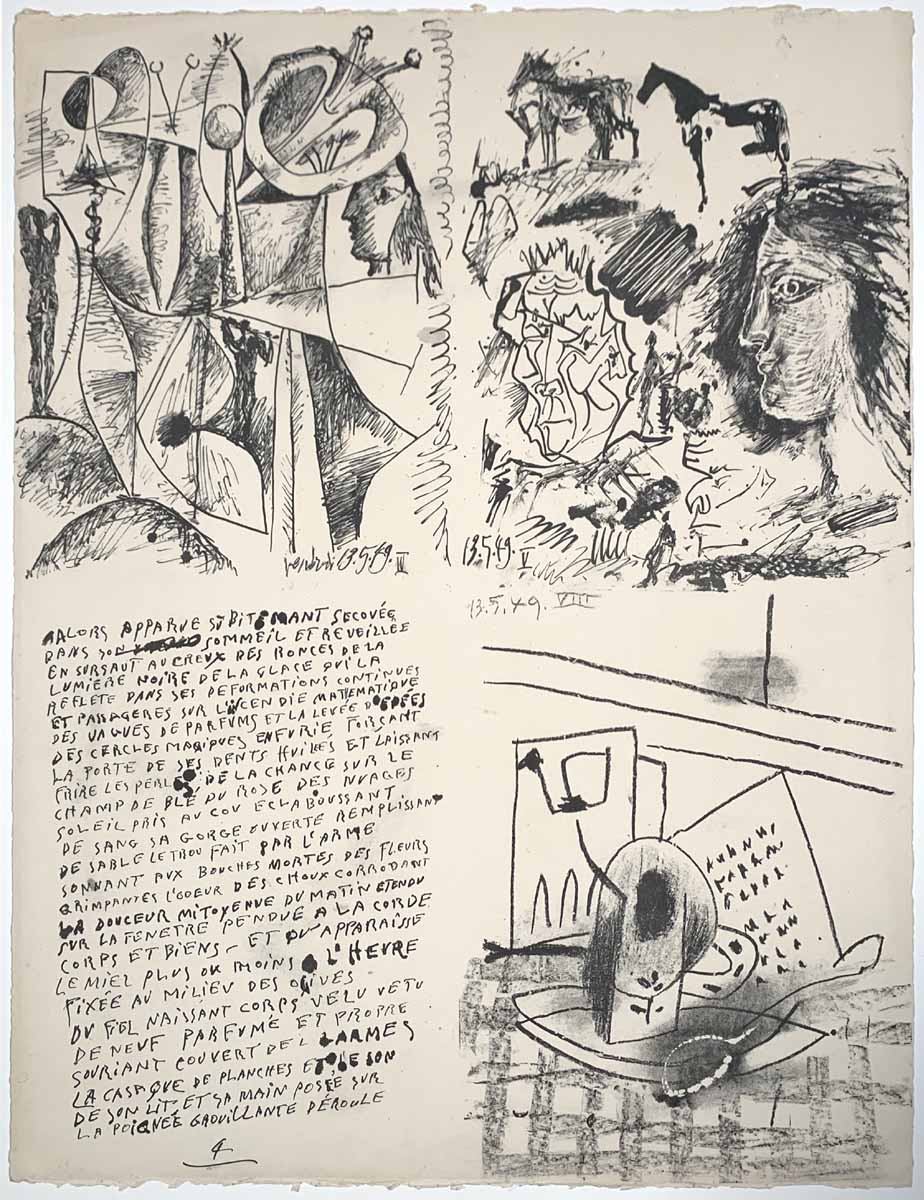 vendredi 13.5.49. II
13.5.49. V
13.5.49. VIII
ALORS APPARUE SUBITEMANT SECOUÉE
DANS SON SOMMEIL ET REVEILLÉE
EN SURSAUT AU CREUX DES RONCES DE LA
LUMIÈRE NOIRE DE LA GLACE QUI LA
REFLETE DANS SES DEFORMATIONS CONTINUES
ET PASSAGERES SUR L'INCENDIE MATHEMATIQUE
DES VAGUES DE PARFUMS ET LA LEVÉE D'EPÉES
DES CERCLES MAGIQUES EN FURIE FORÇANT
LA PORTE DE SES DENTS HUILES ET LAISSANT
FRIRE LES PERLES DE LA CHANCE SUR LE
CHAMP DE BLÉ DU ROSE DES NUAGES
SOLEIL PRIS AU COU ECLABOUSSANT
DE SANG SA GORGE OUVERTE REMPLISSANT
DE SABLE LE TROU FAIT PAR L'ARME
SONNANT AUX BOUCHES MORTES DES FLEURS
GRIMPANTES L'ODEUR DES CHOUX CORRODANT
LA DOUCEUR MITOYENNE DU MATIN ETENDU
SUR LA FENETRE PENDUE A LA CORDE
CORPS ET BIENS - ET QU'APPARAÎSSE
LE MIEL PLUS OU MOINS A L'HEURE
FIXÉE AU MILIEU DES OLIVES
DU FIEL NAISSANT CORPS VELU VETU
DE NEUF PARFUMÉ ET PROPRE
SOURIANT COUVERT DE LARMES
LA CASAQUE DE PLANCHES ET LE SON
DE SON LIT ET SA MAIN POSÉE SUR
LA POIGNÉE GROUILLANTE DÉROULE
4